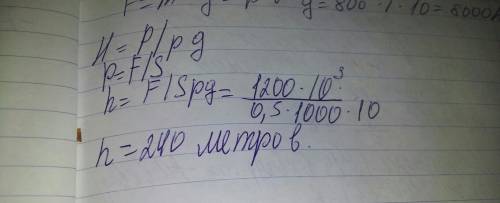 g = 800 · 1 · 10 = 8000
H = P/pg
p = F/S
h = F/Spg = 1200 · 10³ / 0,5 · 1000 · 10
h = 240 метров.